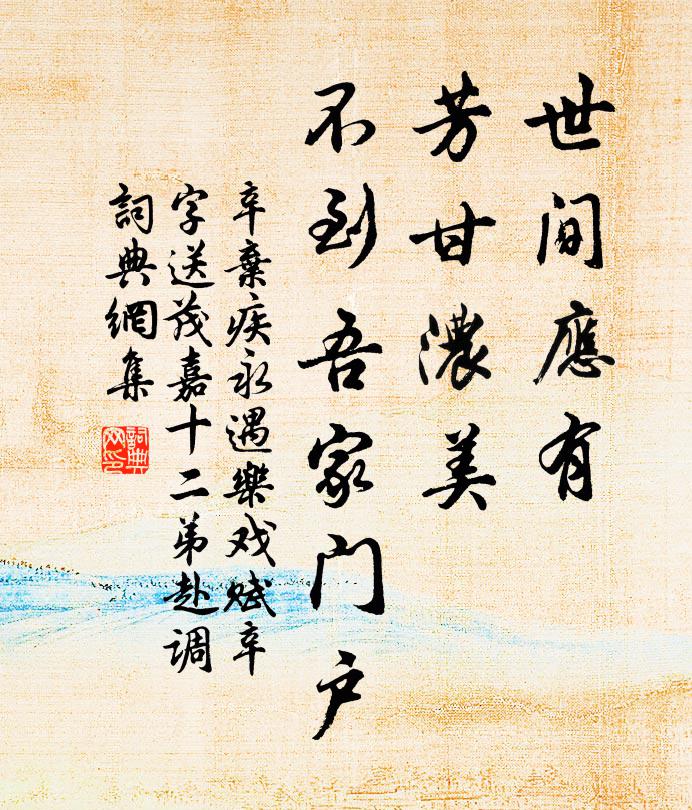 世間應有
芳甘濃美
不到吾家門户
辛棄疾永遇樂戏赋辛
字送茂嘉十二弟赴调
詞典網集
詞典
网印